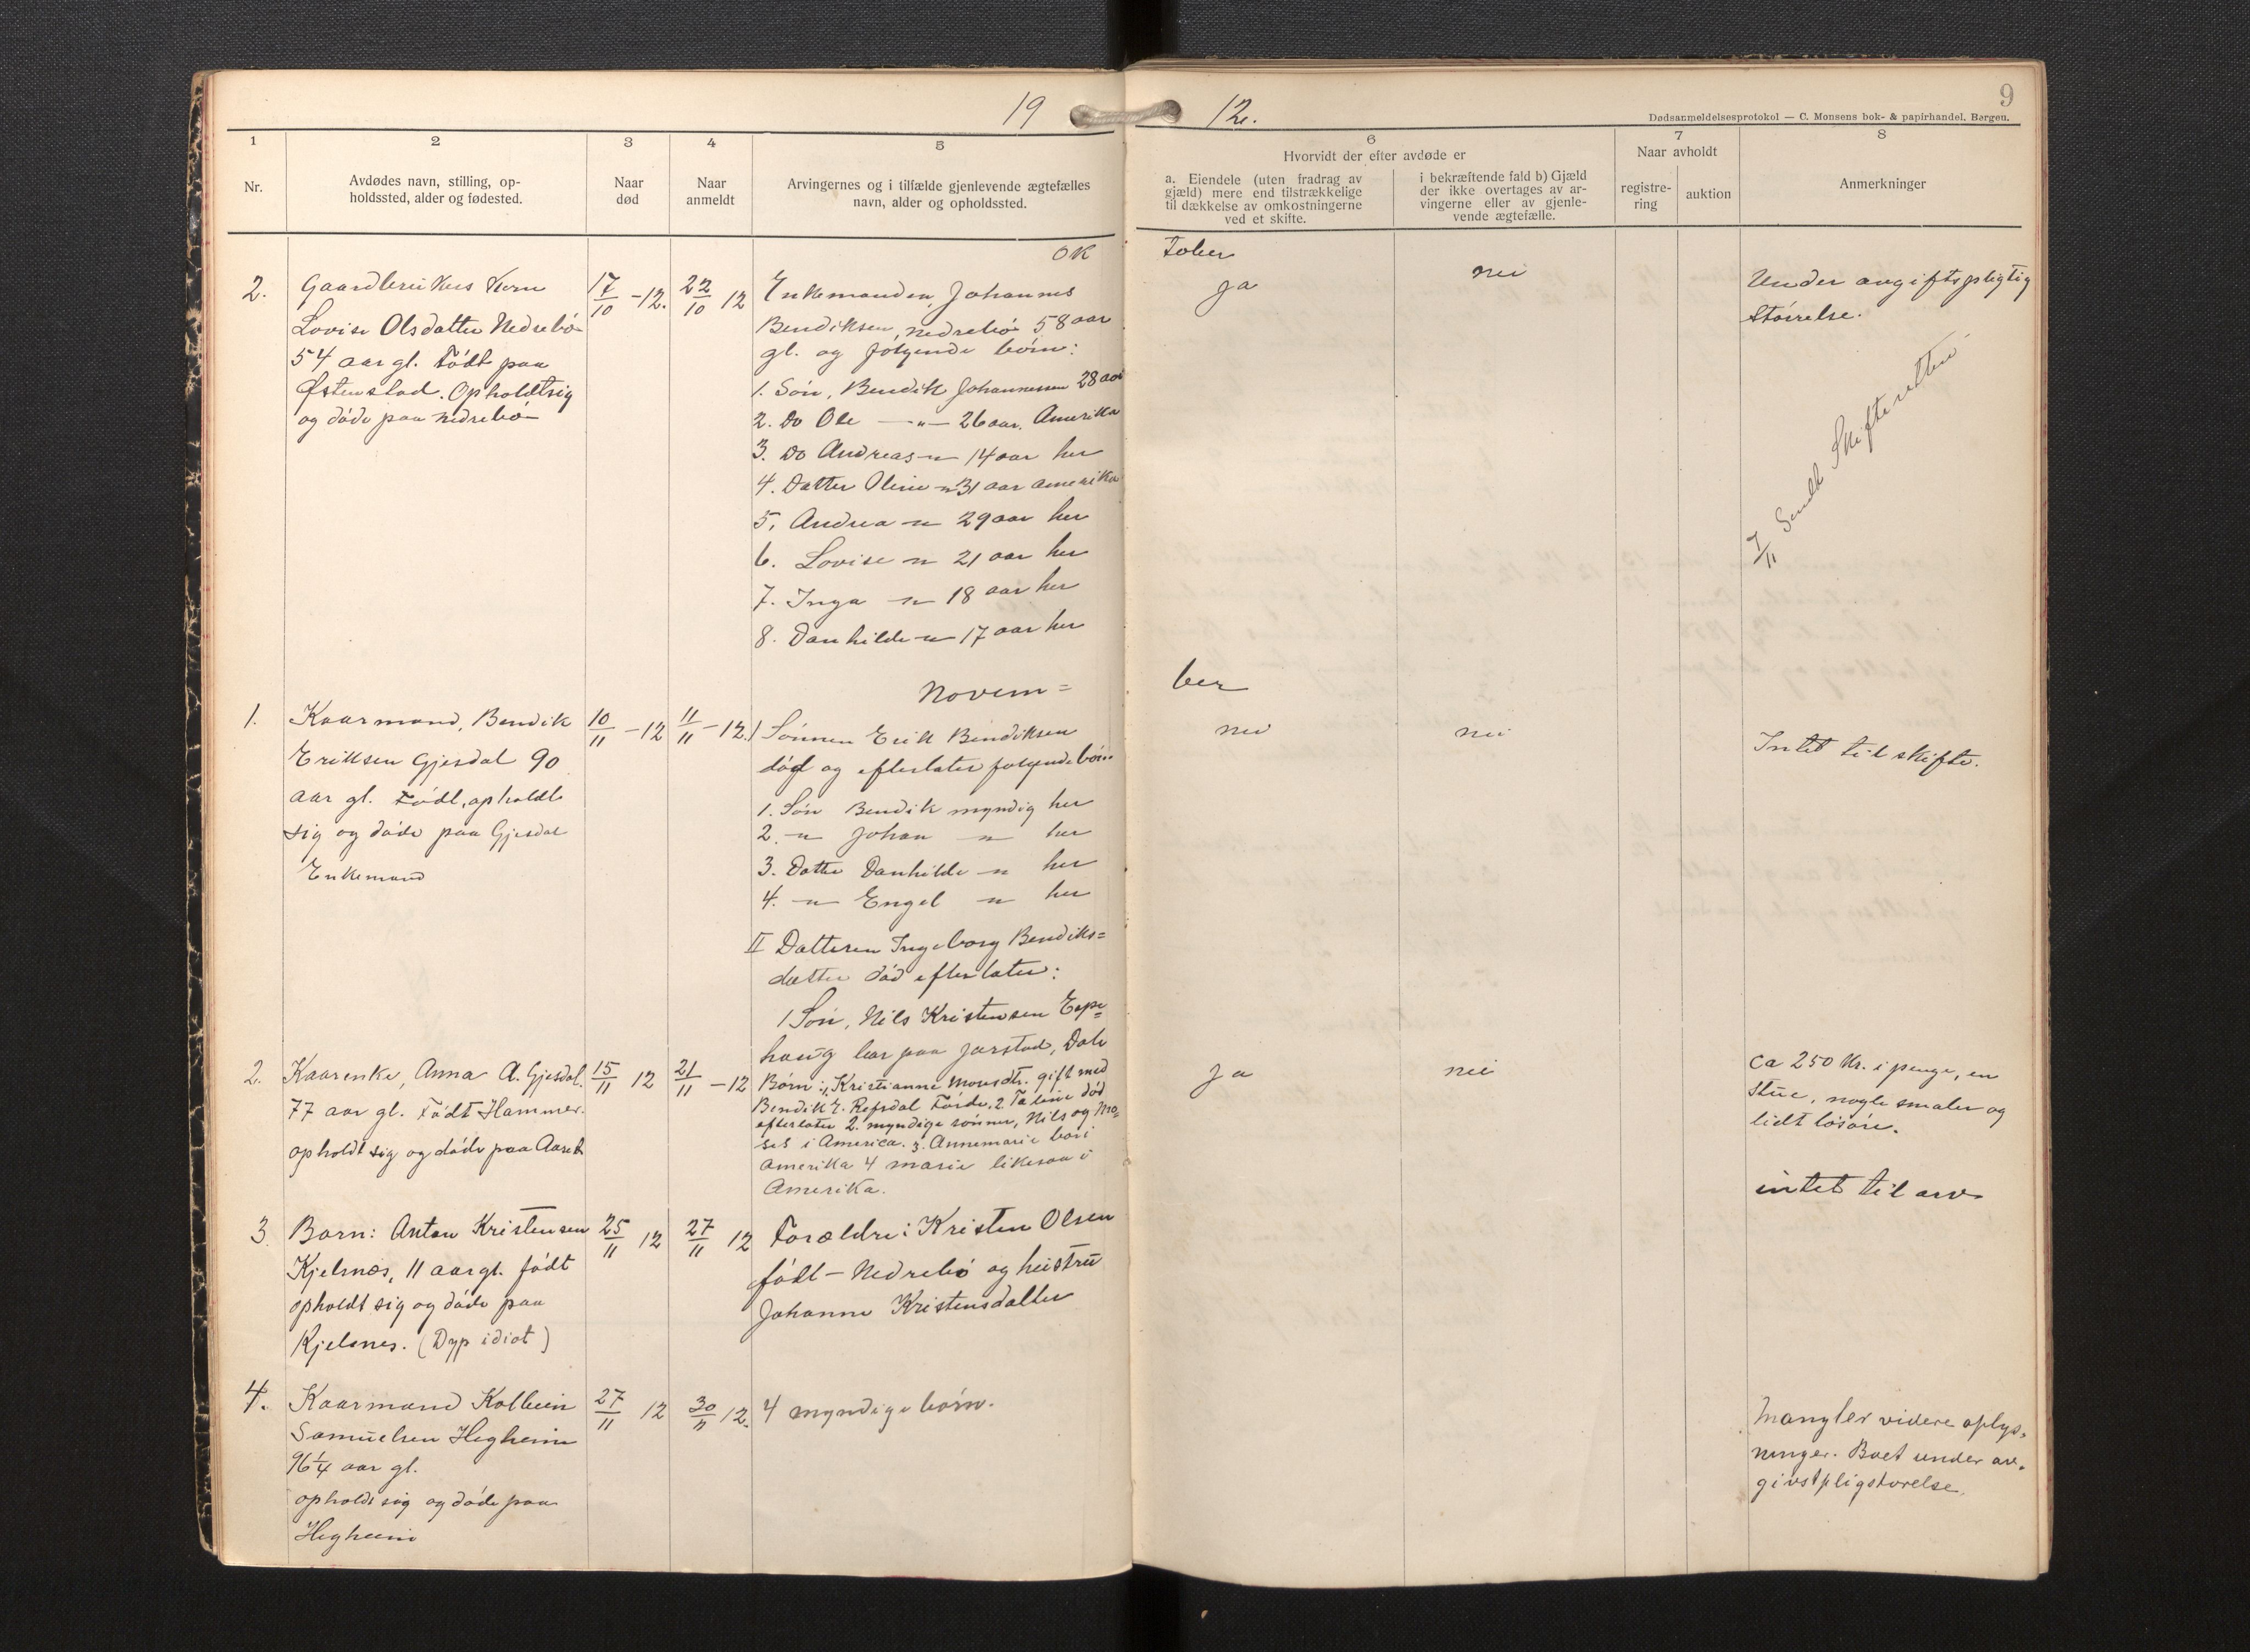 19
12.
9
Dødsanmeldelsesprotokol — C. Monsens bok- & papirhandel, Bergen.
1
2
3
4
5
6
7
8
Nr.
Avdødes navn, stilling, op-
holdssted, alder og fødested.
Naar
død
Naar
anmeldt
Arvingernes og i tilfælde gjenlevende ægtefælles
navn, alder og opholdssted.
Hvorvidt der efter avdøde er
a. Eiendele (uten fradrag av
gjæld) mere end tilstrækkelige
til dækkelse av omkostningerne
ved et skifte.
i bekræftende fald b) Gjæld
der ikke overtages av ar-
vingerne eller av gjenle-
vende ægtefælle.
Naar avholdt
registre-
ring
auktion
Anmerkninger
Ok
tober
2.
Gaardbrukers Kone
Lovise Olsdatter Nedrebö
54 aar gl. Födt paa
Østenstad. Opholdt sig
og döde paa Nedrebö
17/10 - 12.
22/10 12
Enkemanden, Johannes
Bendiksen, Nedrebö 58 aar
gl. og fölgende börn:
1. Sön, Bendik Johannessen 28 aar
2. Do Ole —"— 26 aar. Amerika
3. Do Andreas —"— 14 aar her
4. Datter Oline —"— 31 aar Amerika
5. Andrea —"— 29 aar her
6. Lovise —"— 21 aar her
7. Inga —"— 18 aar her
8. Danhilde —"— 17 aar her
ja
nei
Under avgiftspligtig
Störrelse.
7/11 Sendt Skifteretten
Novem=
ber
1.
Kaarmand, Bendik
Eriksen Gjesdal 90
aar gl. Födt, opholdt
sig og döde paa Gjesdal
Enkemand
10/11 - 12
11/11 - 12.
1 Sönnen Erik Bendiksen
död og efterlater fölgende börn
1. Sön Bendik myndig her
2. —"— Johan —"— her
3. Datter Danhilde —"— her
4. —"— Engel —"— her
II Datteren Ingeborg Bendiks=
datter död efterlater:
1 Sön, Nils Kristensen Espe=
haug bor paa Jarstad, Dale
nei
nei
Intet til skifte.
2.
Kaarenke, Anna A. Gjesdal.
77 aar gl. Födt Hammer.
opholdt sig og döde paa Aaset
15/11 12
21/11 - 12
Börn: 1, Kristianne Monsdtr. gift med
Bendik E. Refsdal Förde, 2 Taline död
efterlater 2. myndige sönner, Nils og Mo=
ses i America. 3. Annemarie bor i
Amerika 4 Marie likesaa i
Amerika.
ja
nei
ca 250 Kr. i penge, en
Stue, nogle smaler og
lidt lösöre.
3
Barn: Anton Kristensen
Kjelsnæs, 11 aar gl. födt
opholdt sig og döde paa
Kjelsnes. (Dyp idiot)
25/11 12
27/11 12
Forældre: Kristen Olsen
födt — Nedrebö og hustru
Johanne Kristensdatter
intet til arv
4.
Kaarmand Kolbein
Samuelsen Hegheim
96¼ aar gl.
opholdt sig og döde paa
Hegheim
27/11 12
30/11 12.
4 myndige börn.
Mangler videre oplys=
ninger. Boet under av=
givstpligstörelse.